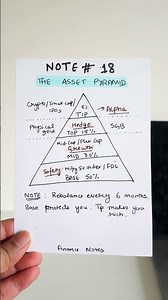 NOTE # 18
THE ASSET PYRAMID
Crypto/Small Cap/
IPOs
5%
TIP
→ Alpha
Physical
gold
Hedge
TOP 15%
SGB
Mid Cap / Flexi Cap
Growth
MID 30%
Safety: Nifty 50 index / FDs
BASE 50%
NOTE: Rebalance every 6 months.
Base protects you. Tip makes you
rich.
Finance Notes